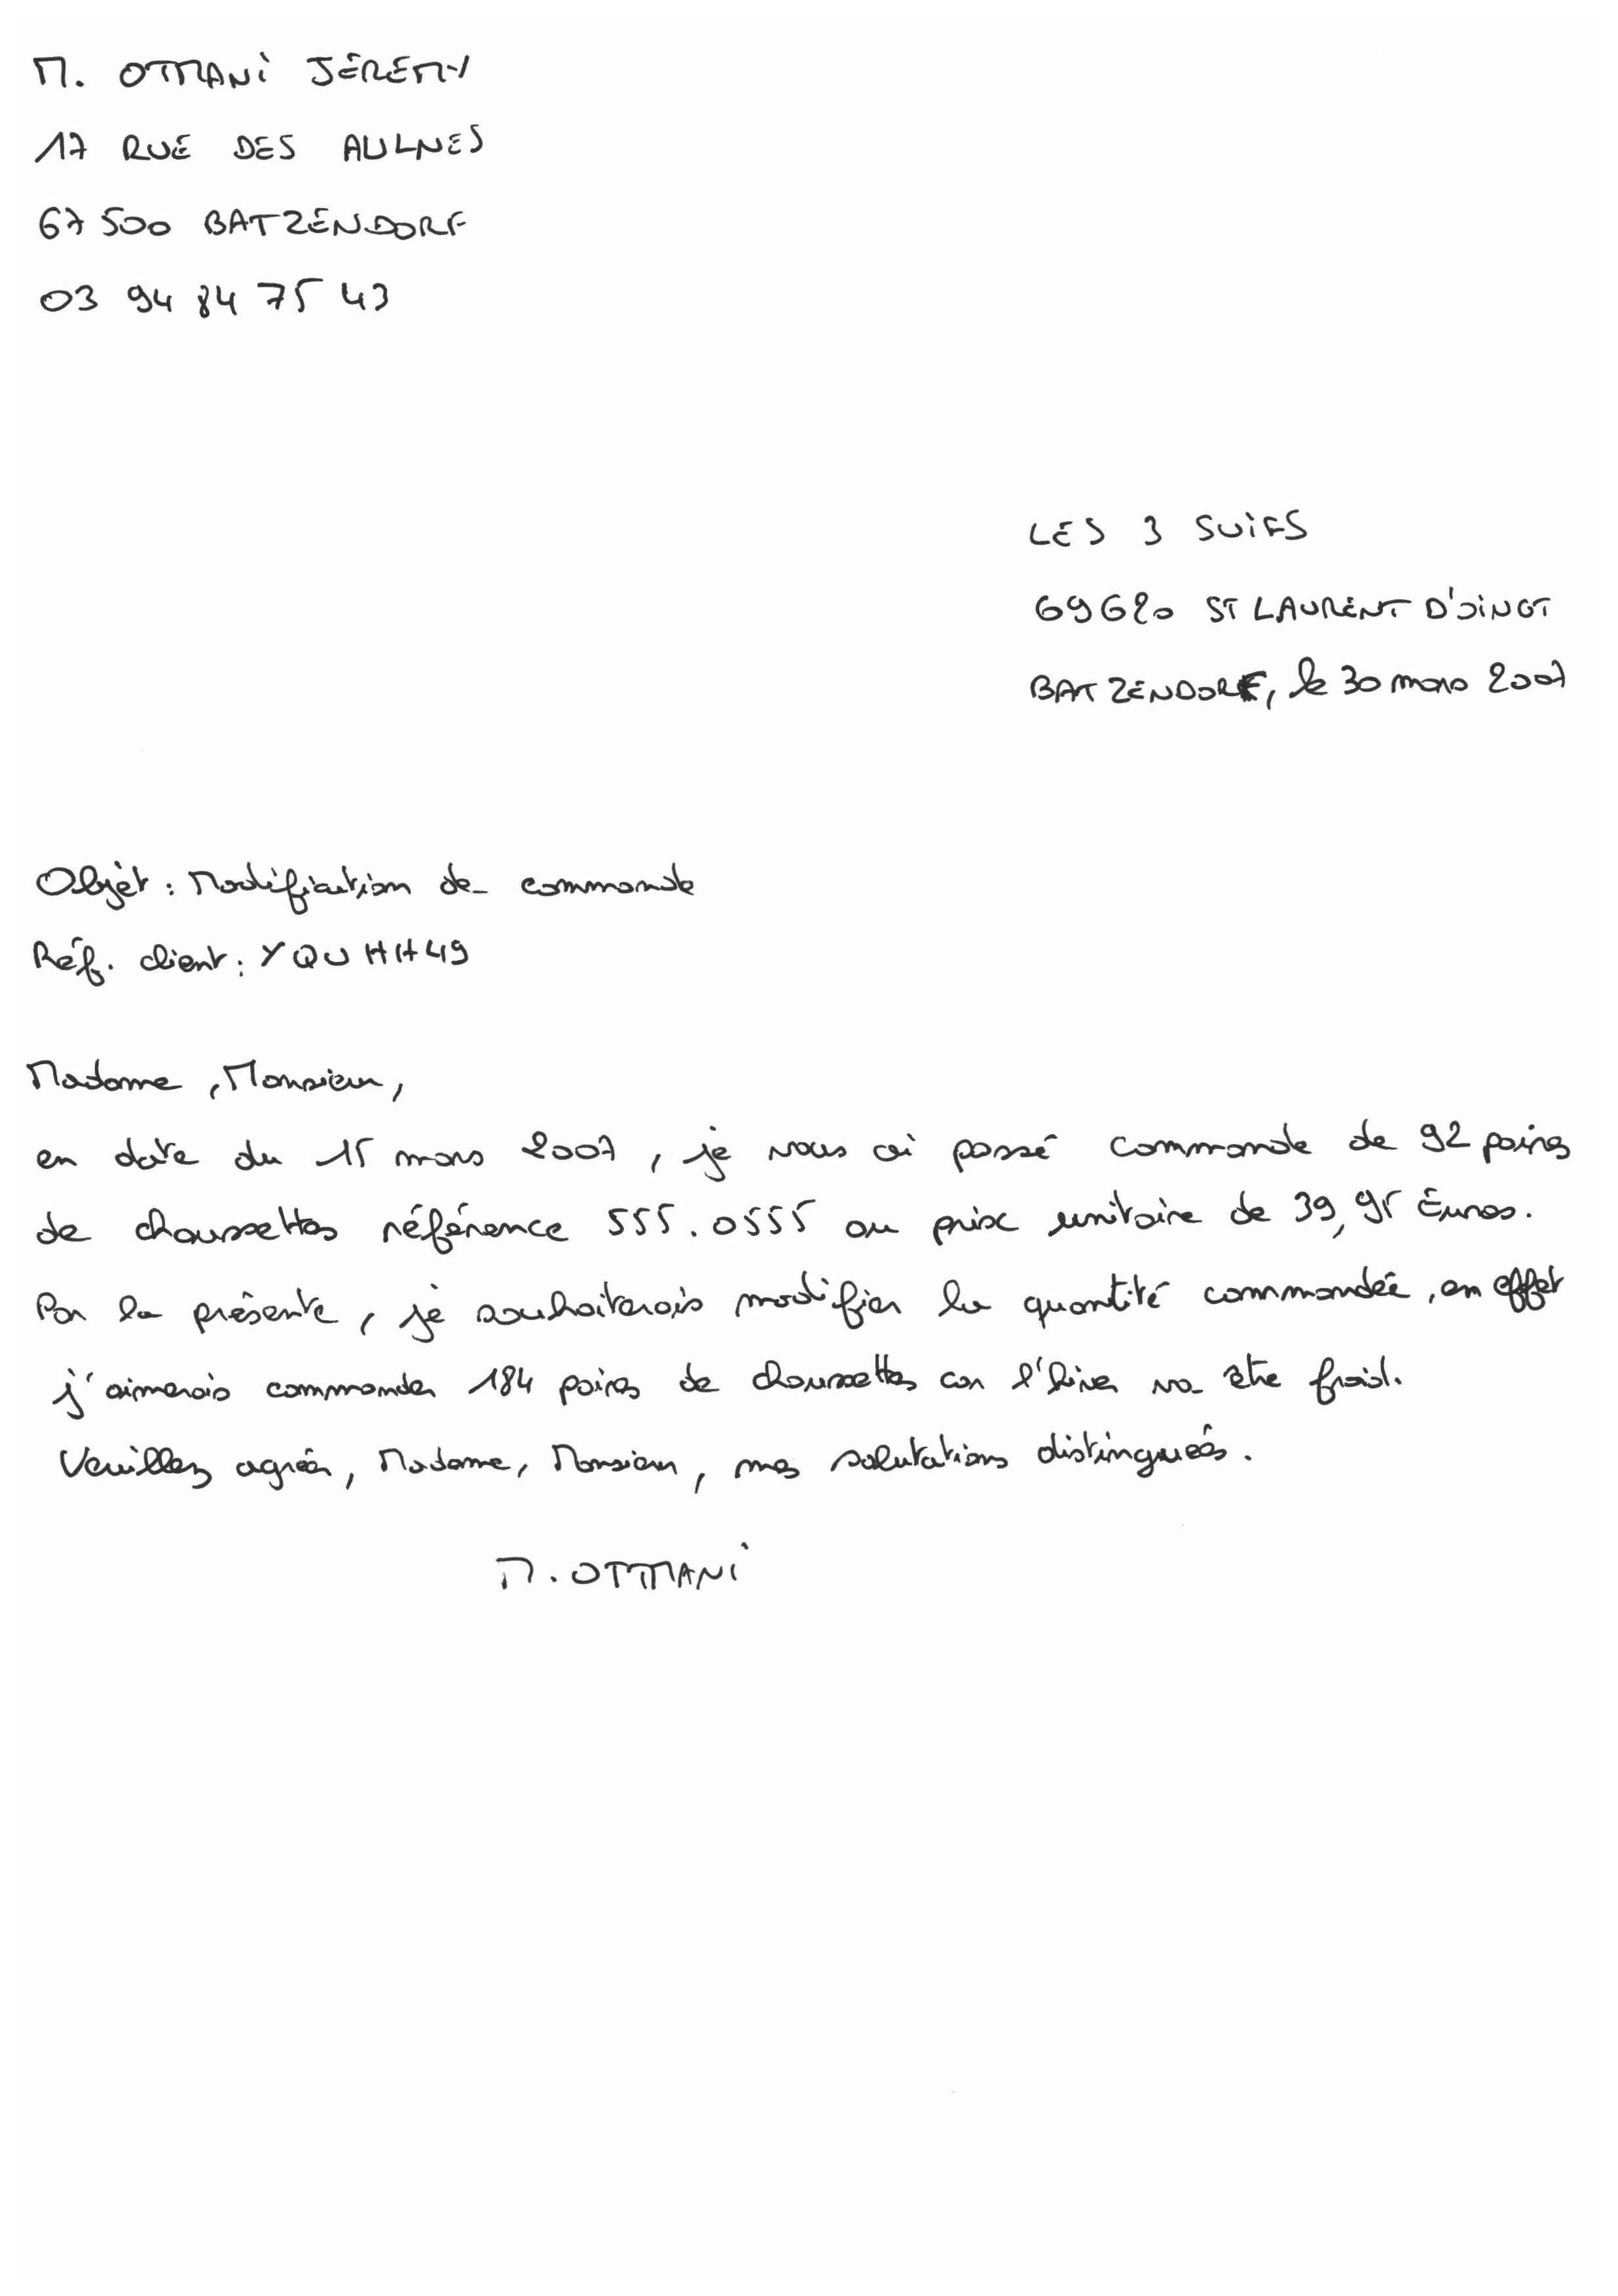 M. OTMANI JÉRÉMY
17 RUE DES AULNES
67500 BATZENDORF
03 94 84 75 43
LES 3 SUIFS
69620 ST LAURENT D'OINGT
BATZENDORF, le 30 mars 2007
Objet : Modification de commande
Réf. client : YQUHH49
Madame, Monsieur,
en date du 15 mars 2007, je vous ai passé commande de 92 paires
de chaussettes référence 555.0555 au prix unitaire de 39,95 Euros.
Par la présente, je souhaiterais modifier la quantité commandée, en effet
j'aimerais commander 184 paires de chaussettes car l'hiver va être froid.
Veuillez agréer, Madame, Monsieur, mes salutations distinguées.
M. OTMANI